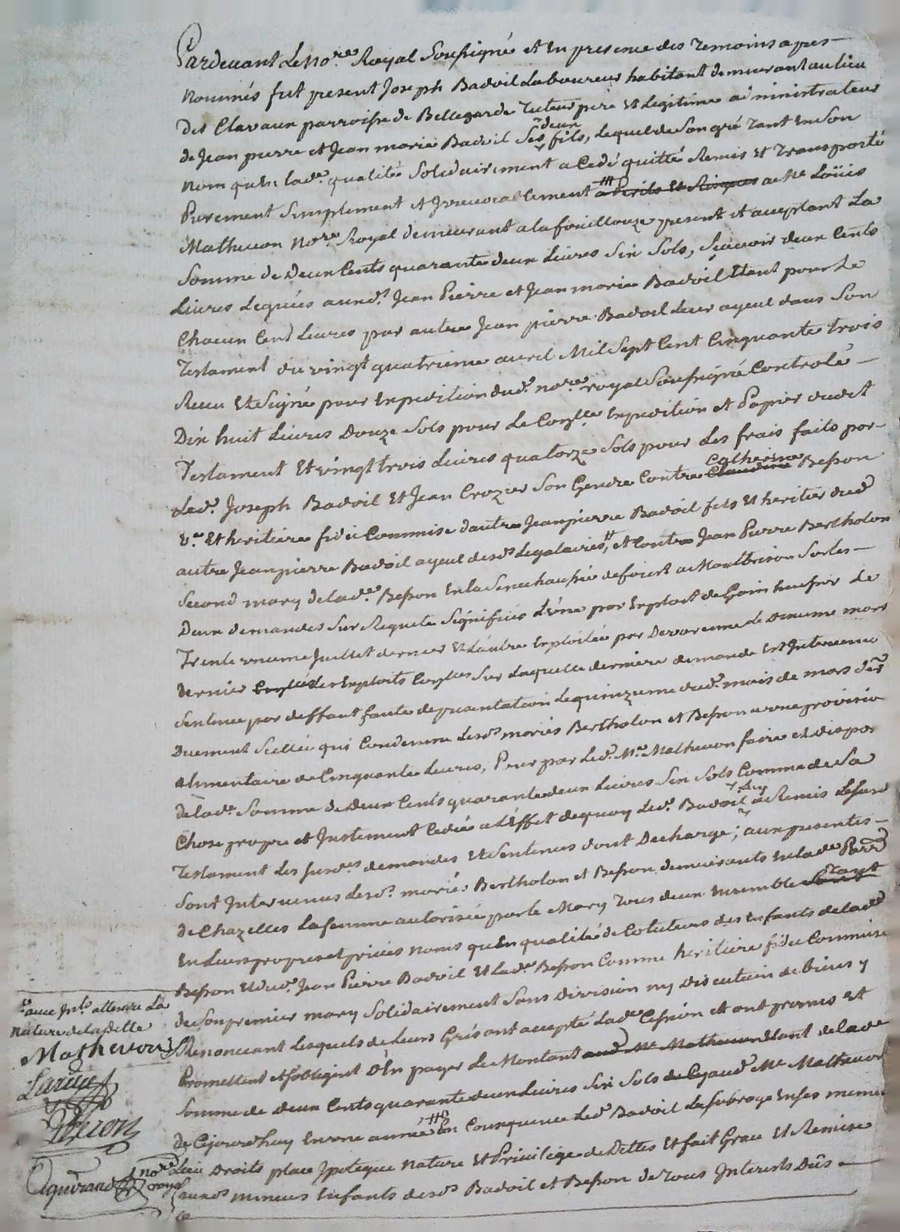 Pardevant Le No.re Royal Soussigné et En presence des Temoins apes-
Nommés fut present Joseph Badoil Laboureur habitant demeurant au lieu
Des Clavaux parroisse de Bellegarde Tuteur pere Et Legitime administrateur
de Jean pierre et Jean marie Badoil Ses deux fils, lequel de Son gré Tant En Son
Nom qu'En lad.e qualité Solidairement a Cedé quitté Remis Et Transporté
Purement Simplement et Irrevocablement a Perils Et Risques a M.e Loüis
Mathevon No.re Royal demeurant a la fouillouze present et acceptant La
Somme de Deux Cents quarante deux Livres Six Sols, Scavoir deux Cents
Livres Leguées auxd.s Jean Pierre et Jean marie Badoil Etant pour Le
Chacun Cent Livres par autre Jean pierre Badoil Leur ayeul dans Son
Testament du vingt quatrieme avril Mil Sept Cent Cinquante trois
Receu Et Signé pour Expedition dud.t no.re royal Soussigné Controlé
Dix huit Livres Douze Sols pour Le Con.lle Expedition et Papier dudit
Testament Et vingt trois Livres quatorze Sols pour Les frais faits par
Led. Joseph Badoil Et Jean Crozier Son Gendre Contre Claudine Catherine Besson
v.e Et heritiere fidei Commise d'autre Jean pierre Badoil fils Et heritier dud
autre Jean pierre Badoil ayeul desd.s Legataires, et Contre Jean Pierre Bertholon
Second mary de lad.e Besson En la Senechaussée de forest a Montbrison Sur les
Deux demandes Sur Requete Signifiées L'une par Exploit de Le
Trente unieme Juillet dernier Et L'autre Exploitée par Le Douzieme mars
dernier Les Exploits Sur Laquelle derniere demande Est Intervenue
Sentence par deffaut faute de presentation Le quinzieme dud.t mois de mars
Duement Scellée qui Condamne Lesd.s mariés Bertholon et Besson a une provision
Alimentaire de Cinquante Livres, Pour par Led. M.e Mathevon faire et dispo
de lad.e Somme de Deux Cents quarante deux Livres Six Sols Comme de Sa
Chose propre et Justement Cedée a L'Effet de quoy Led. Badoil Luy a Remis Lesusd
Testament Les susd.es demandes Et Sentences dont Decharge; aux presentes
Sont Intervenus Lesd.s mariés Bertholon et Besson demeurants En lad.e Parr
de Chazelles La femme autorisée par le Mary Tous deux Ensemble Tant
En Leurs propres et privés noms qu'En qualité de Cotuteurs des Enfants de lad.e
Besson Et dud. Jean Pierre Badoil Et lad.e Besson Comme heritiere fidei Commise
de Son premier mary Solidairement Sans Division ny Discution de biens y
Renonceant Lesquels de Leurs Grés ont accepté Lad.e Cession et ont promis Et
Promettent et s'obligent D'En payer Le Montant aud M.e Mathevon de lad.e
Somme de Deux Cents quarante deux Livres Six Sols aud M.e Mathevon
de Cejourd'huy En une année En Consequence Led Badoil La Subroge En Ses memes
Lieu Droits place Ipoteque Nature Et Privilege de Dettes Et fait Grace Et Remise
aux mineurs Enfants desd.s Badoil et Besson de Tous Interests Dûs
Sans alterer La
Nature de la dette
Mathevon